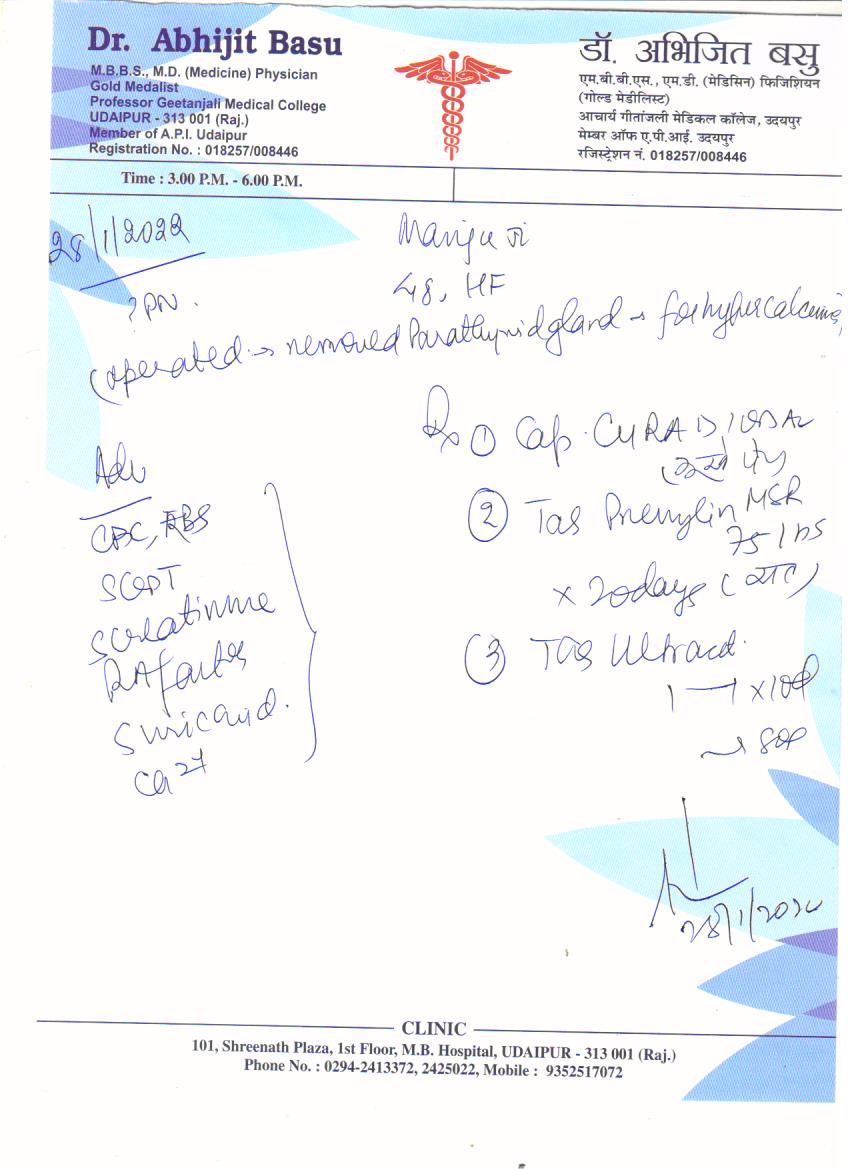 Dr. Abhijit Basu
M.B.B.S., M.D. (Medicine) Physician
Gold Medalist
Professor Geetanjali Medical College
UDAIPUR - 313 001 (Raj.)
Member of A.P.I. Udaipur
Registration No. : 018257/008446
डॉ. अभिजित बसु
एम.बी.बी.एस., एम.डी. (मेडिसिन) फिजिशियन
(गोल्ड मेडीलिस्ट)
आचार्य गीतांजली मेडिकल कॉलेज, उदयपुर
मेम्बर ऑफ ए.पी.आई. उदयपुर
रजिस्ट्रेशन नं. 018257/008446
Time : 3.00 P.M. - 6.00 P.M.
28/1/2022
Manju ji
48, HF
? PN.
(operated → removed Parathyroid gland → for hypercalcemia)
Adv
CBC, RBS
SGOT
S creatinine
RA factor
S uric acid.
Ca 2+
Rx ① Cap. CURA D3
② Tab Prenylin MSR
75 1 HS
x 20 days (रात)
③ Tab Ultracet.
1 — 1 x 10d
→ SOP
28/1/2022
CLINIC
101, Shreenath Plaza, 1st Floor, M.B. Hospital, UDAIPUR - 313 001 (Raj.)
Phone No. : 0294-2413372, 2425022, Mobile : 9352517072